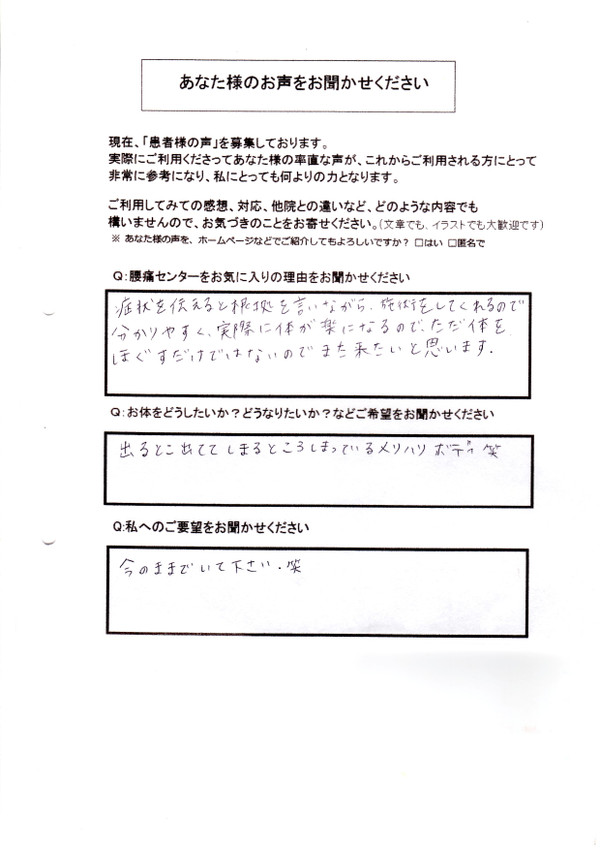 あなた様のお声をお聞かせください
現在、「患者様の声」を募集しております。
実際にご利用くださってあなた様の率直な声が、これからご利用される方にとって
非常に参考になり、私にとっても何よりの力となります。
ご利用してみての感想、対応、他院との違いなど、どのような内容でも
構いませんので、お気づきのことをお寄せください。(文章でも、イラストでも大歓迎です)
※ あなた様の声を、ホームページなどでご紹介してもよろしいですか？ □はい □匿名で
Q:腰痛センターをお気に入りの理由をお聞かせください
症状を伝えると根拠を言いながら、施術をしてくれるので
分かりやすく、実際に体が楽になるので、ただ体を
ほぐすだけではないのでまた来たいと思います.
Q:お体をどうしたいか？どうなりたいか？などご希望をお聞かせください
出るとこ出ててしまるところしまっているメリハリボディ 笑
Q:私へのご要望をお聞かせください
今のままでいて下さい.笑